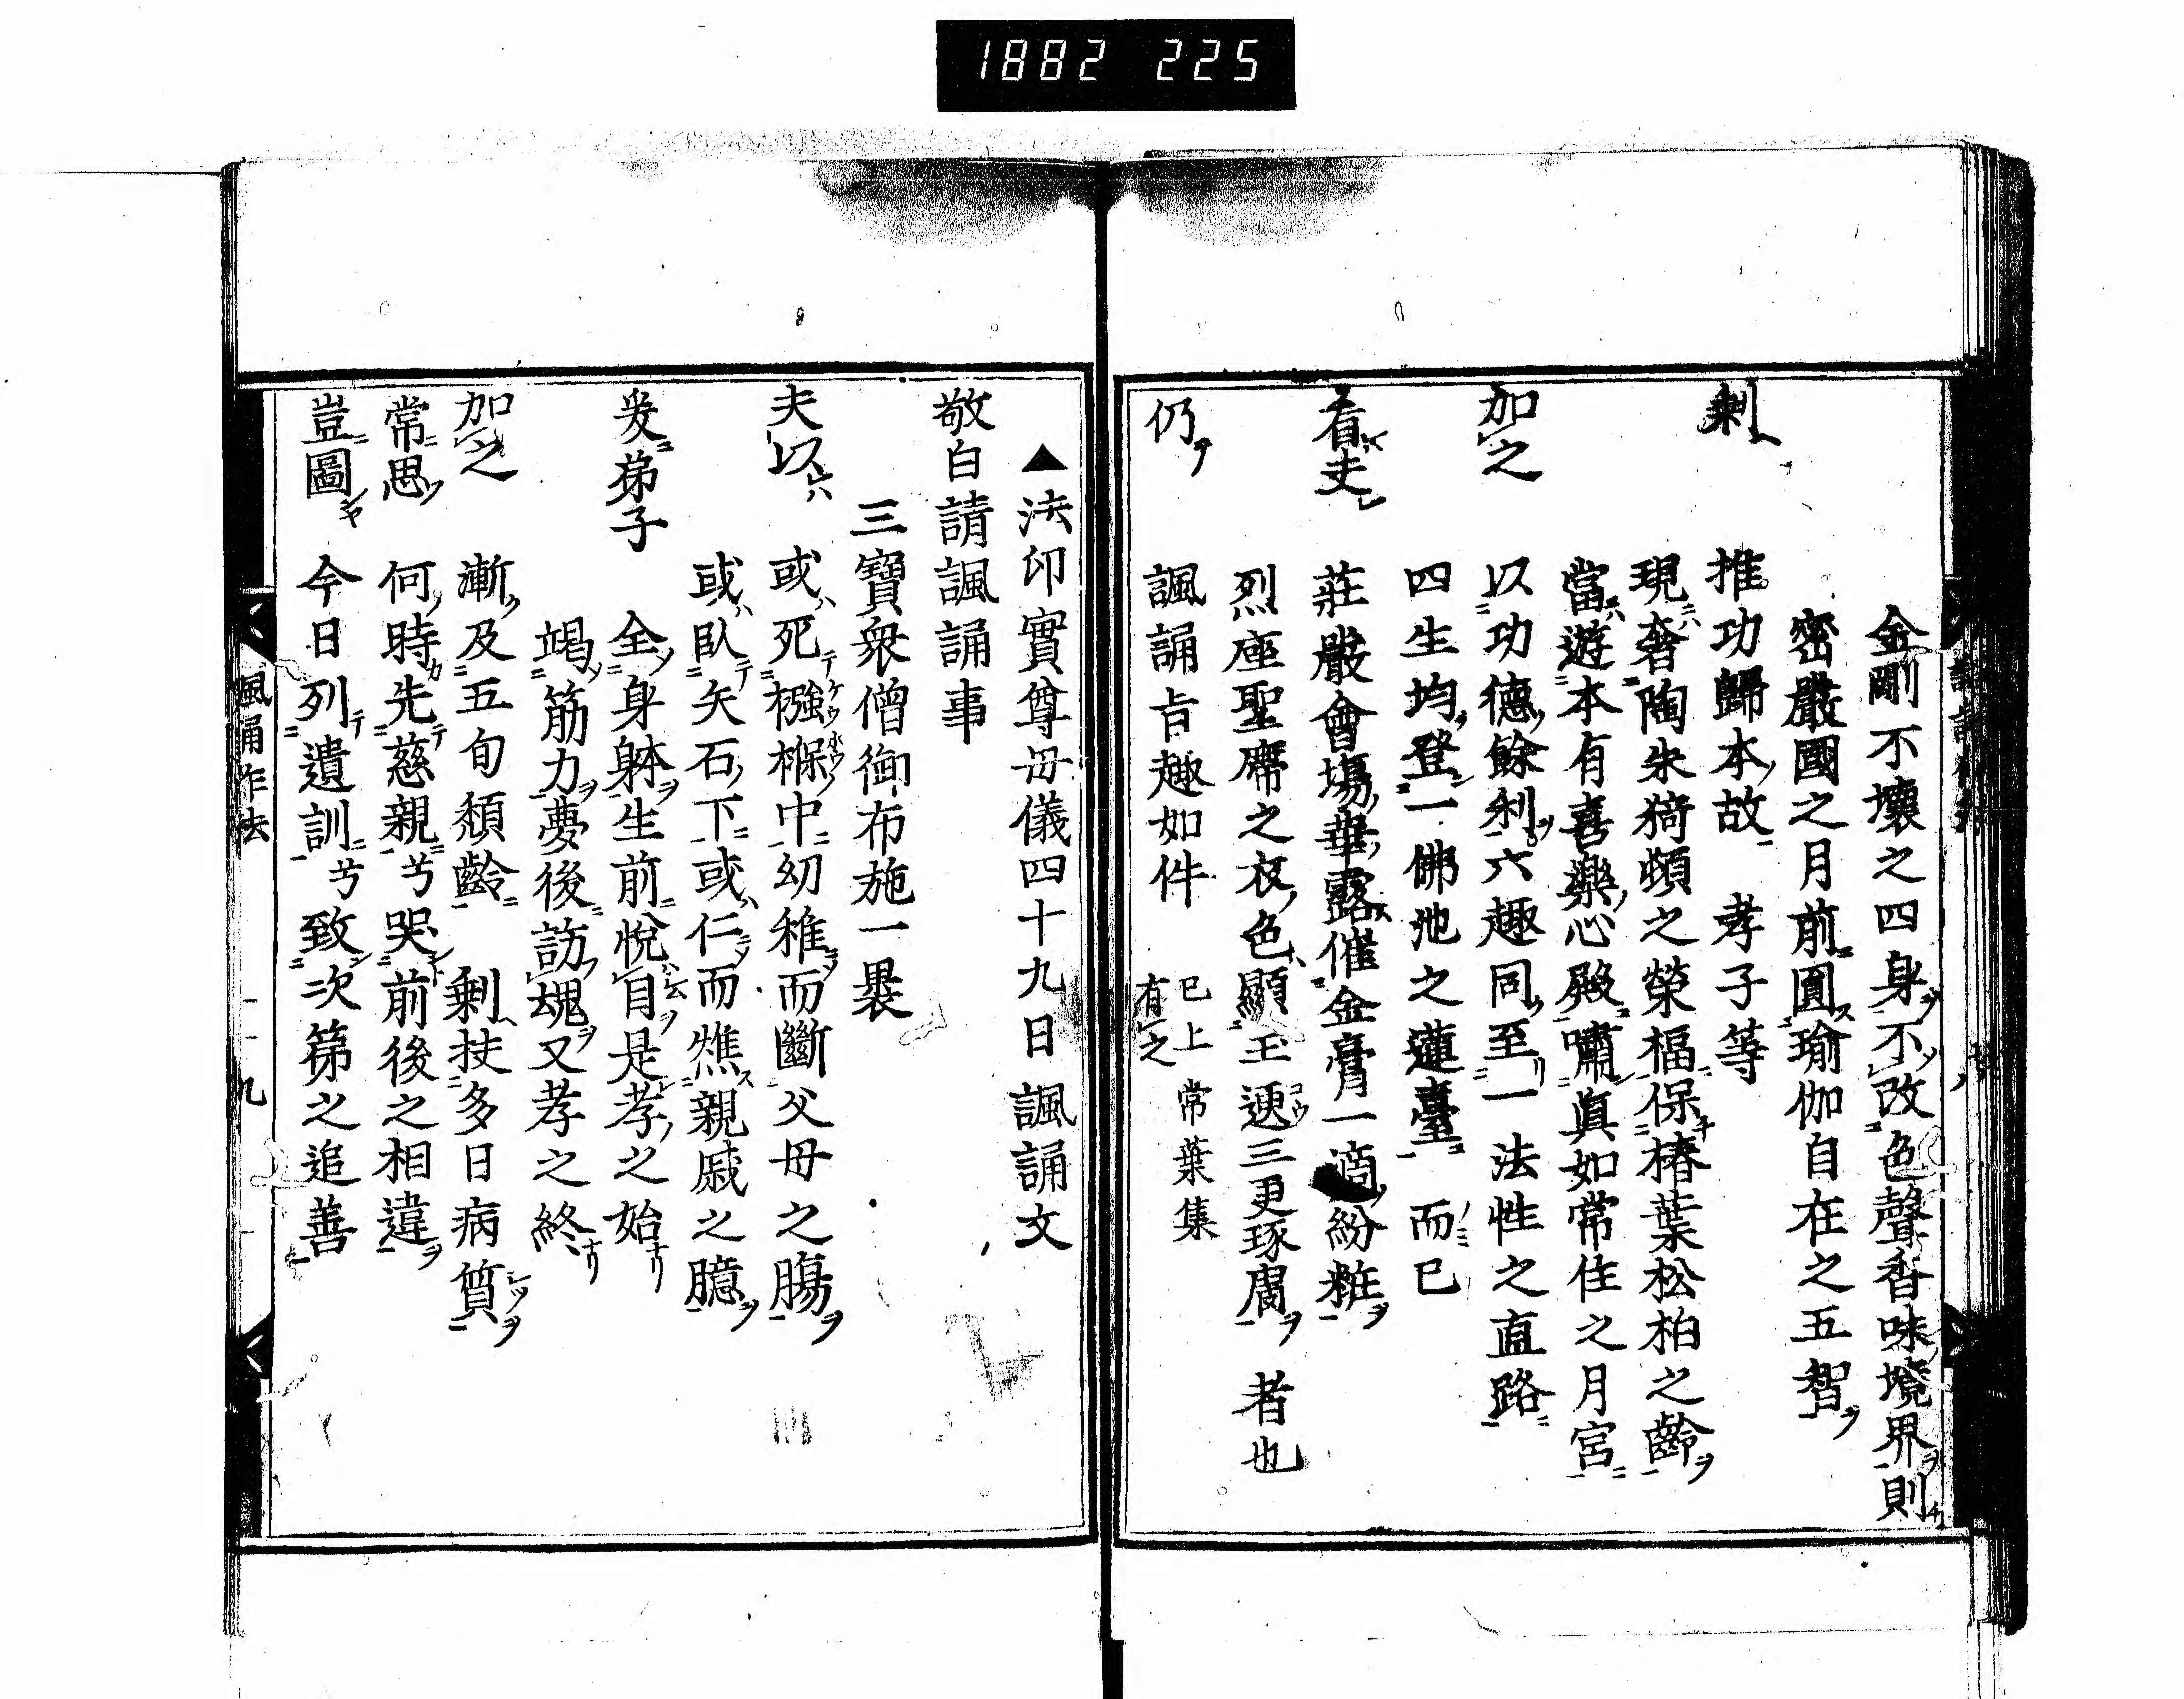 1882 225
金剛不壞之四身不改色聲香味境界則
密嚴國之月前圓瑜伽自在之五智
剩 推功歸本故 孝子等
現奢陶朱猗頓之榮福保椿葉松柏之齡
當遊本有喜樂心殿嘯眞如常住之月宮
加之 以功德餘利六趣同至一法性之直路
四生均登一佛池之蓮臺 而已
看夫 莊嚴會場華露催金膏一滴紛粧
烈座聖席之衣色顯玉逩三更琢膚 者也
仍 諷誦旨趣如件 已上常葉集
有之
▲法印實尊母儀四十九日諷誦文
敬白請諷誦事
三寶衆僧御布施一裹
夫以 或死襁褓中幼稚而斷父母之腸
或臥矢石下或仁而燋親戚之臆
爰弟子 全身躰生前悅自是孝之始
竭筋力夢後訪魂又孝之終
加之 漸及五旬頽齡 剩扶多日病質
常思 何時先慈親兮哭前後之相違
豈圖 今日列遺訓兮致次第之追善
諷誦作法 九